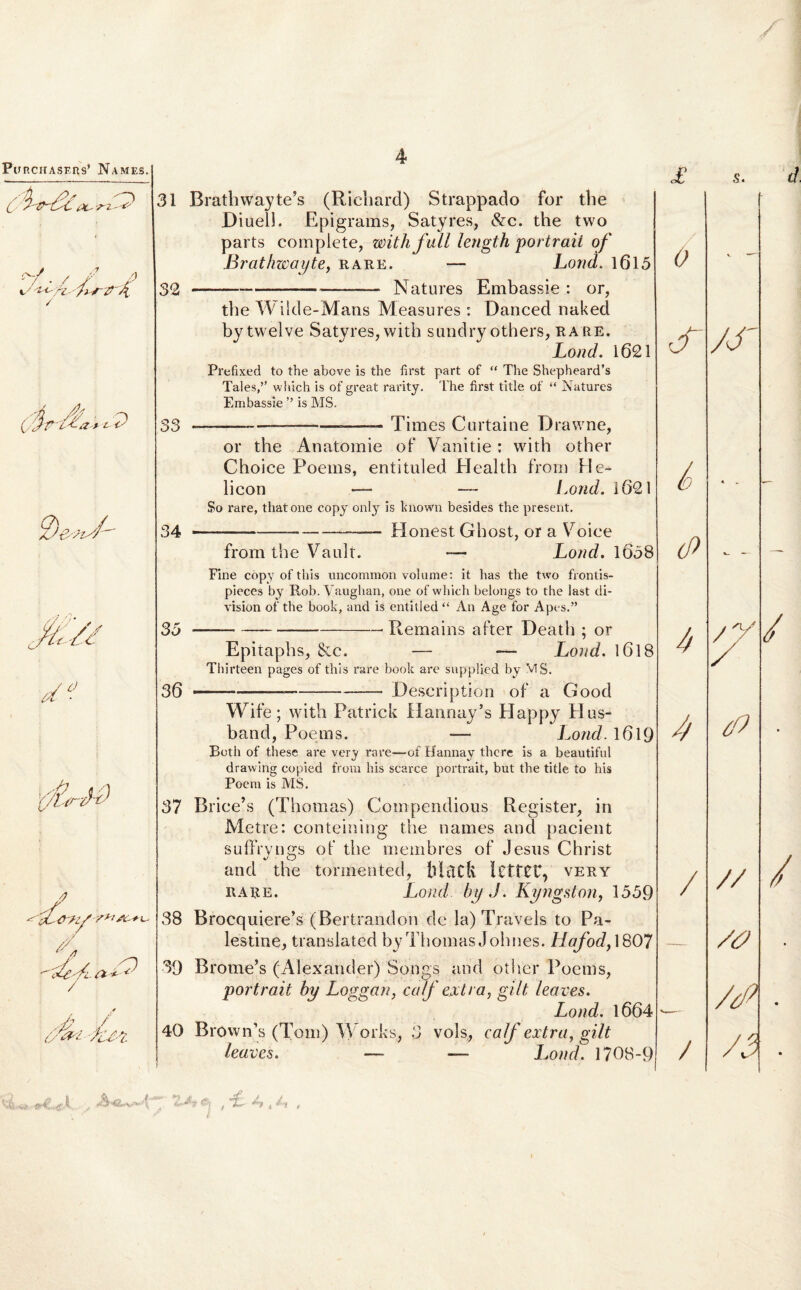 4
Purchasers' Names.
£ s. d.
31 Brathwayte's (Richard) Strappado for the
Diuell. Epigrams, Satyres, &c. the two
parts complete, with full length portrait of
Brathwayte, RARE. — Lond. 1615
32 ——— Natures Embassie: or,
the Wilde-Mans Measures: Danced naked
by twelve Satyres, with sundry others, RARE.
Lond. 1621
Prefixed to the above is the first part of “ The Shepheard's
Tales,” which is of great rarity. The first title of “ Natures
Embassie ” is MS.
33 ——— Times Curtaine Drawne,
or the Anatomie of Vanitie: with other
Choice Poems, entituled Health from He-
licon — — Lond. 1621
So rare, that one copy only is known besides the present.
Dent
34 ——— Honest Ghost, or a Voice
from the Vault. — Lond. 1658
Fine copy of this uncommon volume: it has the two frontis-
pieces by Rob. Vaughan, one of which belongs to the last di-
vision of the book, and is entitled “ An Age for Apes.”
Hill
35 ——— Remains after Death; or
Epitaphs, &c. — — Lond. 1618 4 17 6
Thirteen pages of this rare book are supplied by MS.
do
36 ——— Description of a Good
Wife; with Patrick Hannay's Happy Hus-
band, Poems. — Lond. 1619
Both of these are very rare—of Hannay there is a beautiful
drawing copied from his scarce portrait, but the title to his
Poem is MS.
37 Brice's (Thomas) Compendious Register, in
Metre: conteining the names and pacient
suffryngs of the membres of Jesus Christ
and the tormented, black letter, VERY
RARE. Lond. by J. Kyngston, 1559 1 11 6
Longman
38 Brocquiere's (Bertrandon de la) Travels to Pa-
lestine, translated by Thomas Johnes. Hafod, 1807 — 10 .
39 Brome's (Alexander) Songs and other Poems,
portrait by Loggan, calf extra, gilt leaves.
Lond. 1664
40 Brown's (Tom) Works, 3 vols, calf extra, gilt
leaves. — — Lond. 1708-9 1 13 .